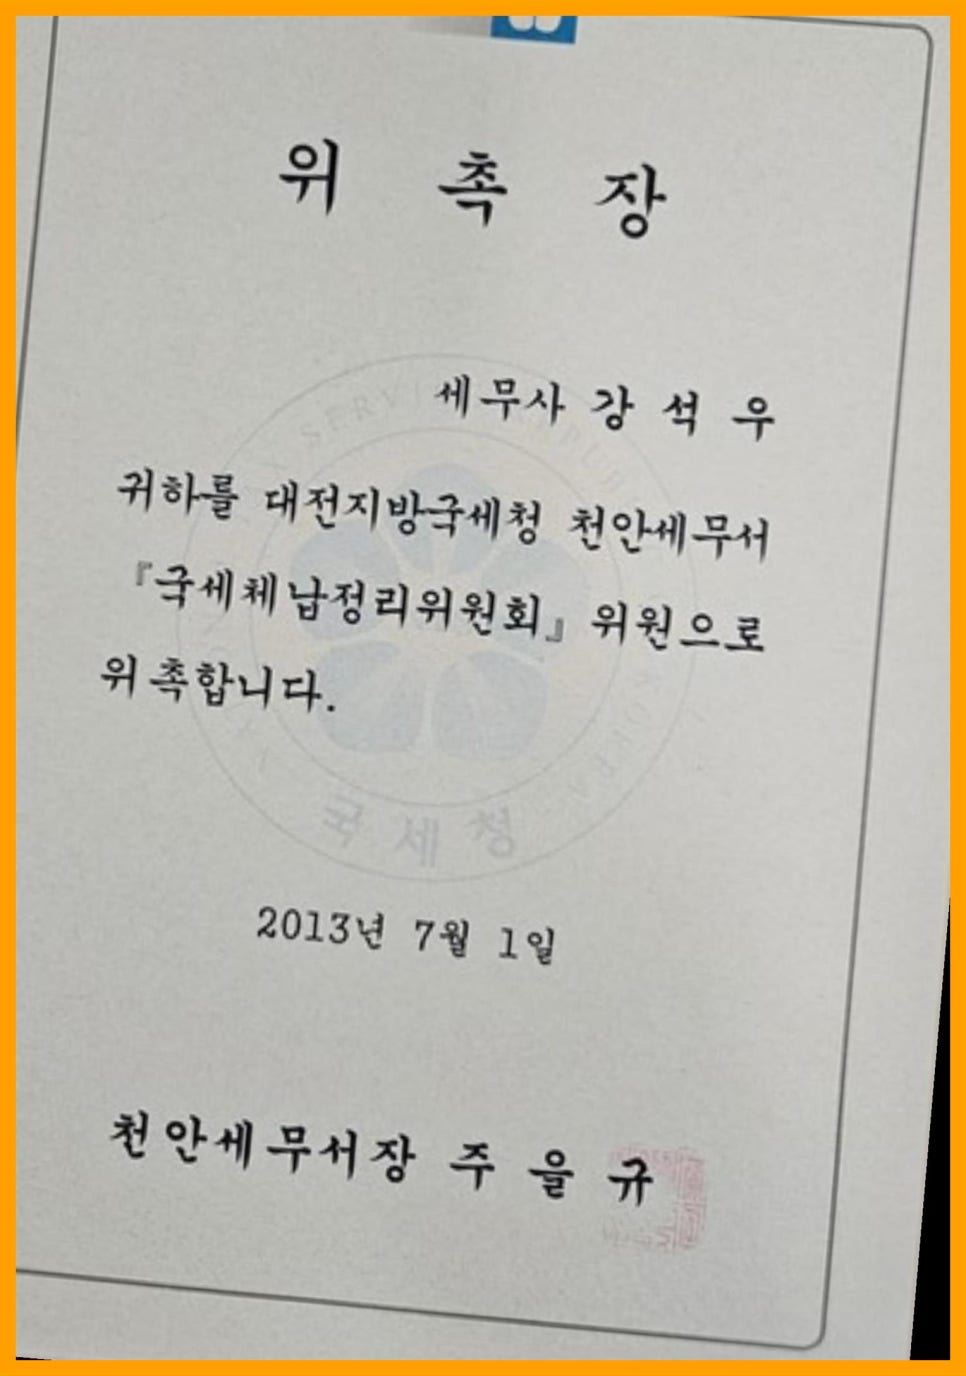 위 촉 장
세무사 강 석 우
귀하를 대전지방국세청 천안세무서
『국세체납정리위원회』 위원으로
위촉합니다.
국세청
2013년 7월 1일
천안세무서장 주 을 규